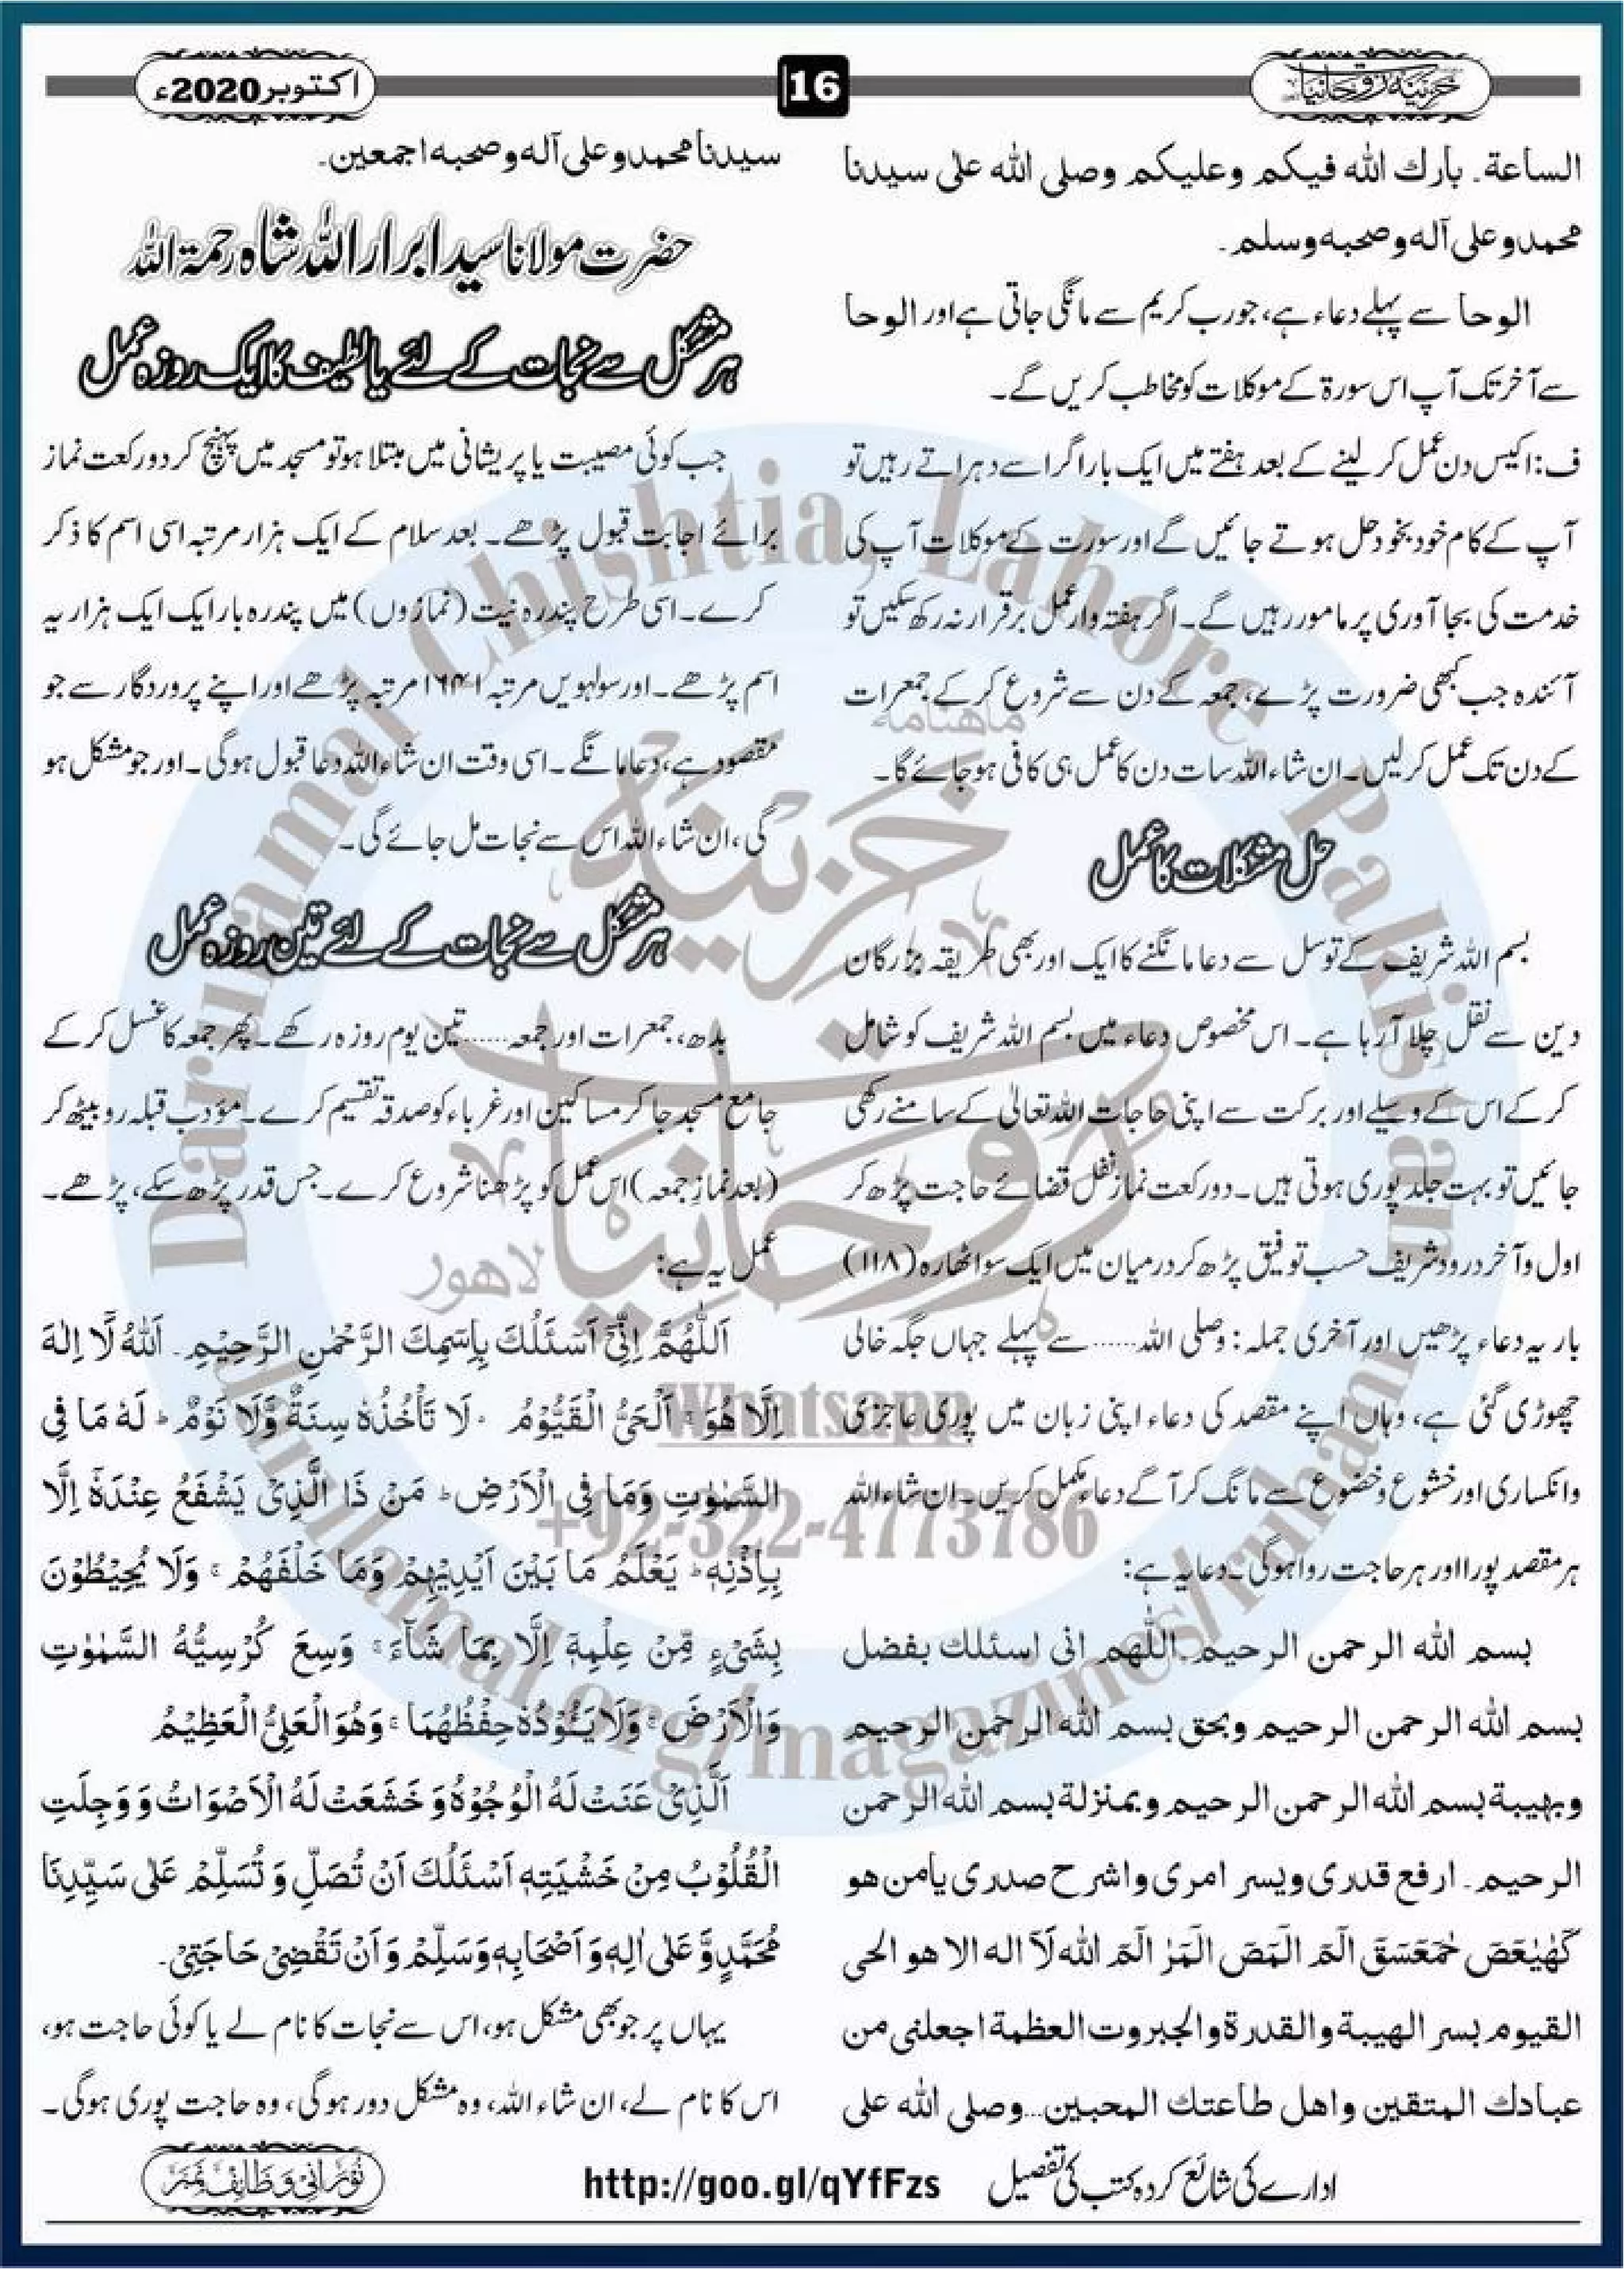 خزینۂ روحانیات
16
اکتوبر 2020ء
الساعة۔ بارك الله فيكم وعليكم وصلى الله على سيدنا
محمد وعلى آله وصحبه وسلم۔
الوحا سے پہلے دعاء ہے، جو رب کریم سے مانگی جاتی ہے اور الوحا
سے آخر تک آپ اس سورۃ کے موکلات کو مخاطب کریں گے۔
ف: اکیس دن عمل کر لینے کے بعد ہفتے میں ایک بار اگر اسے دہراتے رہیں تو
آپ کے کام خود بخود حل ہوتے جائیں گے اور سورت کے موکلات آپ کی
خدمت کی بجا آوری پر مامور رہیں گے۔ اگر ہفتہ وار عمل برقرار نہ رکھ سکیں تو
آئندہ جب کبھی ضرورت پڑے، جمعہ کے دن سے شروع کر کے جمعرات
کے دن تک عمل کر لیں۔ ان شاء اللہ سات دن کا عمل ہی کافی ہو جائے گا۔
حل مشکلات کا عمل
بسم اللہ شریف کے توسل سے دعا مانگنے کا ایک اور بھی طریقہ بزرگان
دین سے نقل چلا آ رہا ہے۔ اس مخصوص دعاء میں بسم اللہ شریف کو شامل
کر کے اس کے وسیلے اور برکت سے اپنی حاجات اللہ تعالیٰ کے سامنے رکھی
جائیں تو بہت جلد پوری ہوتی ہیں۔ دو رکعت نماز نفل قضائے حاجت پڑھ کر
اول و آخر درود شریف حسب توفیق پڑھ کر درمیان میں ایک سو اٹھارہ (۱۱۸)
بار یہ دعاء پڑھیں اور آخری جملہ: وصلی اللہ...... سے پہلے جہاں جگہ خالی
چھوڑی گئی ہے، وہاں اپنے مقصد کی دعاء اپنی زبان میں پوری عاجزی
وانکساری اور خشوع وخضوع سے مانگ کر آگے دعاء مکمل کریں۔ ان شاء اللہ
ہر مقصد پورا اور ہر حاجت روا ہوگی۔ دعا یہ ہے:
بسم الله الرحمن الرحيم۔ اللّٰهم انى اسئلك بفضل
بسم الله الرحمن الرحيم وبحق بسم الله الرحمن الرحيم
وبهيبة بسم الله الرحمن الرحيم وبمنزلة بسم الله الرحمن
الرحيم۔ ارفع قدرى ويسر امرى واشرح صدرى يامن هو
كٓهٰيٰعٓصٓ حٰمٓعٓسٓقٓ الٓمٓ الٓمٓصٓ الٓمٓرٰ الٓمٓ الله لَآ اله الا هو الحى
القيوم بسر الهيبة والقدرة والجبروت العظمة اجعلنى من
عبادك المتقين واهل طاعتك المحبين...وصلى الله على
سيدنا محمد وعلى آله وصحبه اجمعين۔
حضرت مولانا سید ابرار اللہ شاہ رحمۃ اللہ
ہر مشکل سے نجات کے لئے یا لطیف کا ایک روزہ عمل
جب کوئی مصیبت یا پریشانی میں مبتلا ہو تو مسجد میں پہنچ کر دو رکعت نماز
برائے اجابت قبول پڑھے۔ بعد سلام کے ایک ہزار مرتبہ اسی اسم کا ذکر
کرے۔ اسی طرح پندرہ نیت (نمازوں) میں پندرہ بار ایک ایک ہزار یہ
اسم پڑھے۔ اور سولہویں مرتبہ ۱۶۴۱ مرتبہ پڑھے اور اپنے پروردگار سے جو
مقصود ہے، دعا مانگے۔ اسی وقت ان شاء اللہ دعا قبول ہوگی۔ اور جو مشکل ہو
گی، ان شاء اللہ اس سے نجات مل جائے گی۔
ہر مشکل سے نجات کے لئے تین روزہ عمل
بدھ، جمعرات اور جمعہ...... تین یوم روزہ رکھے۔ پھر جمعہ کا غسل کر کے
جامع مسجد جا کر مساکین اور غرباء کو صدقہ تقسیم کرے۔ مؤدب قبلہ رو بیٹھ کر
(بعد نمازِ جمعہ) اس عمل کو پڑھنا شروع کرے۔ جس قدر پڑھ سکے، پڑھے۔
عمل یہ ہے:
اَللّٰهُمَّ اِنِّىْٓ اَسْئَلُكَ بِاِسْمِكَ الرَّحْمٰنِ الرَّحِيْمِ۔ اَللهُ لَآ اِلٰهَ
اِلَّا هُوَ ۚ اَلْحَىُّ الْقَيُّوْمُ ۚ لَا تَأْخُذُهٗ سِنَةٌ وَّلَا نَوْمٌ ؕ لَهٗ مَا فِى
السَّمٰوٰتِ وَمَا فِى الْاَرْضِ ؕ مَنْ ذَا الَّذِىْ يَشْفَعُ عِنْدَهٗٓ اِلَّا
بِاِذْنِهٖ ؕ يَعْلَمُ مَا بَيْنَ اَيْدِيْهِمْ وَمَا خَلْفَهُمْ ۚ وَلَا يُحِيْطُوْنَ
بِشَىْءٍ مِّنْ عِلْمِهٖٓ اِلَّا بِمَا شَآءَ ۚ وَسِعَ كُرْسِيُّهُ السَّمٰوٰتِ
وَالْاَرْضَ ۚ وَلَا يَئُوْدُهٗ حِفْظُهُمَا ۚ وَهُوَ الْعَلِىُّ الْعَظِيْمُ
اَلَّذِىْ عَنَتْ لَهُ الْوُجُوْهُ وَ خَشَعَتْ لَهُ الْاَصْوَاتُ وَ وَجِلَتِ
الْقُلُوْبُ مِنْ خَشْيَتِهٖ اَسْئَلُكَ اَنْ تُصَلِّ وَ تُسَلِّمْ عَلٰى سَيِّدِنَا
مُحَمَّدٍ وَّ عَلٰى اٰلِهٖ وَ اَصْحَابِهٖ وَسَلِّمْ وَ اَنْ تَقْضِىْ حَاجَتِىْ۔
یہاں پر جو بھی مشکل ہو، اس سے نجات کا نام لے یا کوئی حاجت ہو،
اس کا نام لے، ان شاء اللہ، وہ مشکل دور ہوگی، وہ حاجت پوری ہوگی۔
ادارے کی شائع کردہ کتب کی تفصیل http://goo.gl/qYfFzs
نورانی وظائف نمبر
Darulamal Chishtia, Lahore, Pakistan
ماهنامه
خزینۂ
روحانیات
لاهور
Whatsapp
+92-322-4773786
darulamal.org/magazines/ruhani